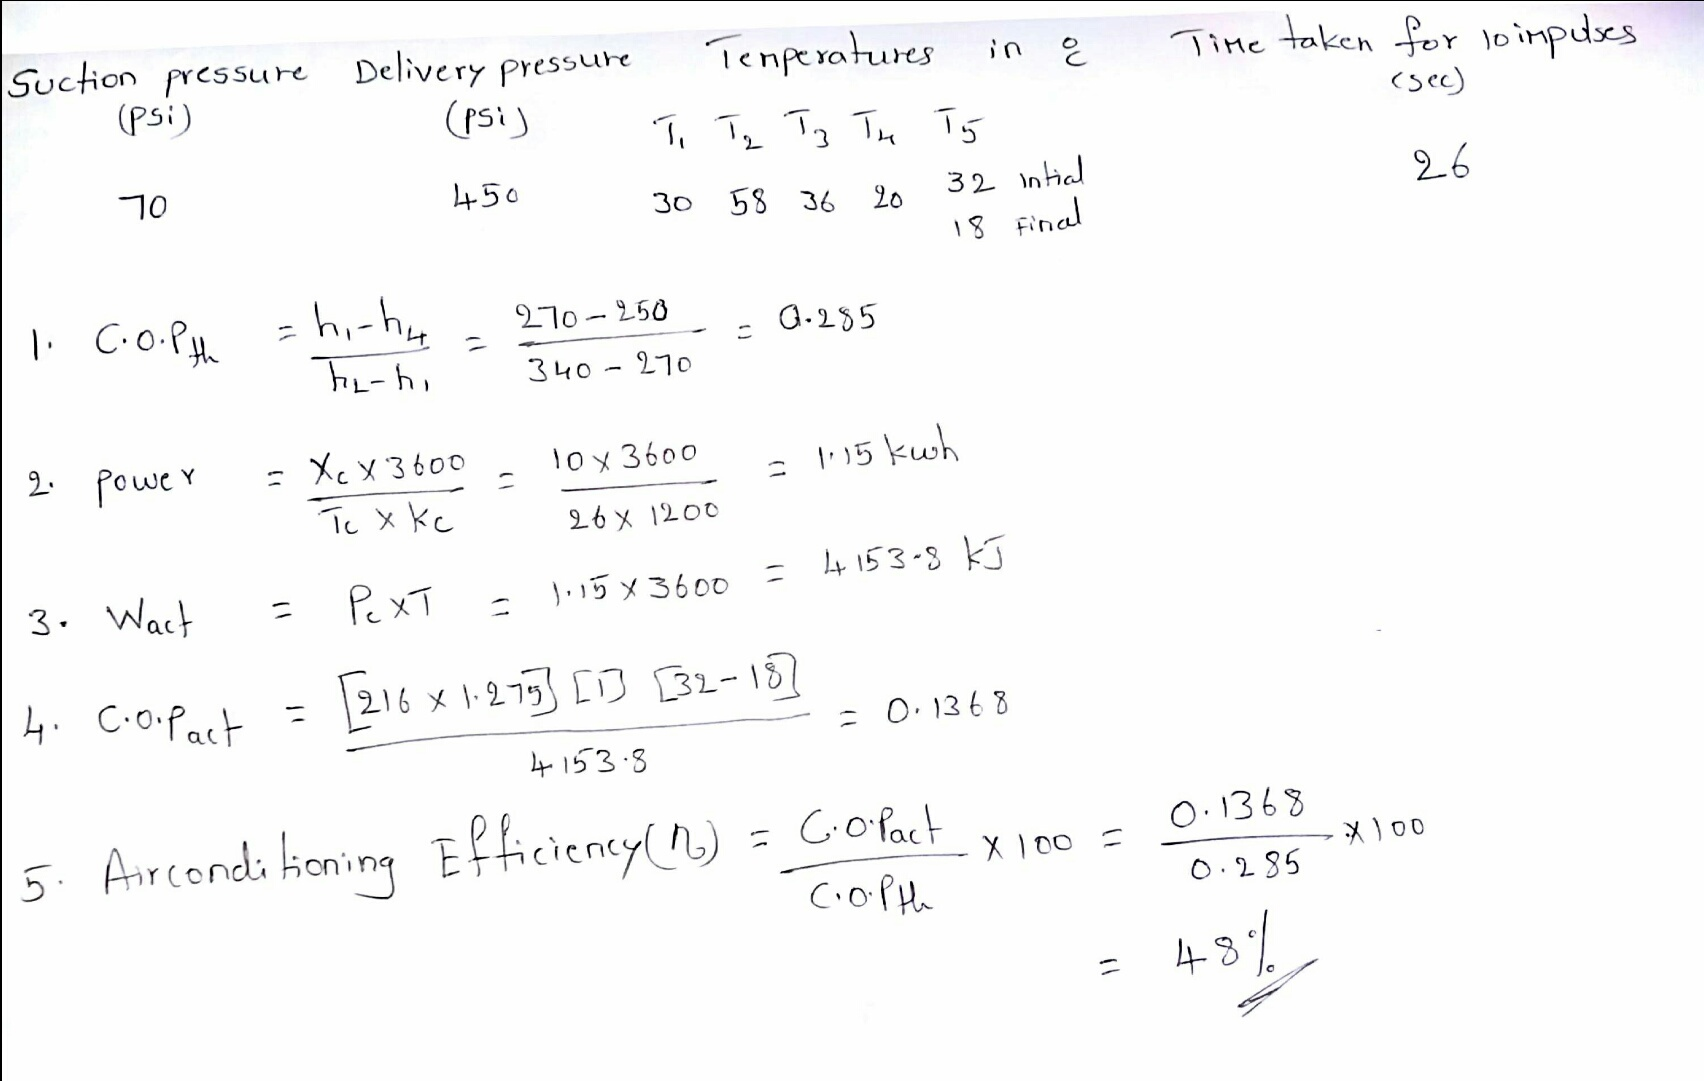 Suction pressure Delivery pressure Temperatures in °C Time taken for 10 impulses
(Psi) (Psi) (sec)
T1 T2 T3 T4 T5
70 450 30 58 36 20 32 Intial 26
18 Final
1. C.O.Pth = h1-h4 / h2-h1 = 270-250 / 340-270 = 0.285
2. Power = Xc x 3600 / Tc x Kc = 10 x 3600 / 26 x 1200 = 1.15 kwh
3. Wact = Pc x T = 1.15 x 3600 = 4153.8 kJ
4. C.O.Pact = [216 x 1.275] [1] [32-18] / 4153.8 = 0.1368
5. Airconditioning Efficiency(η) = C.O.Pact / C.O.Pth x 100 = 0.1368 / 0.285 x 100
= 48%